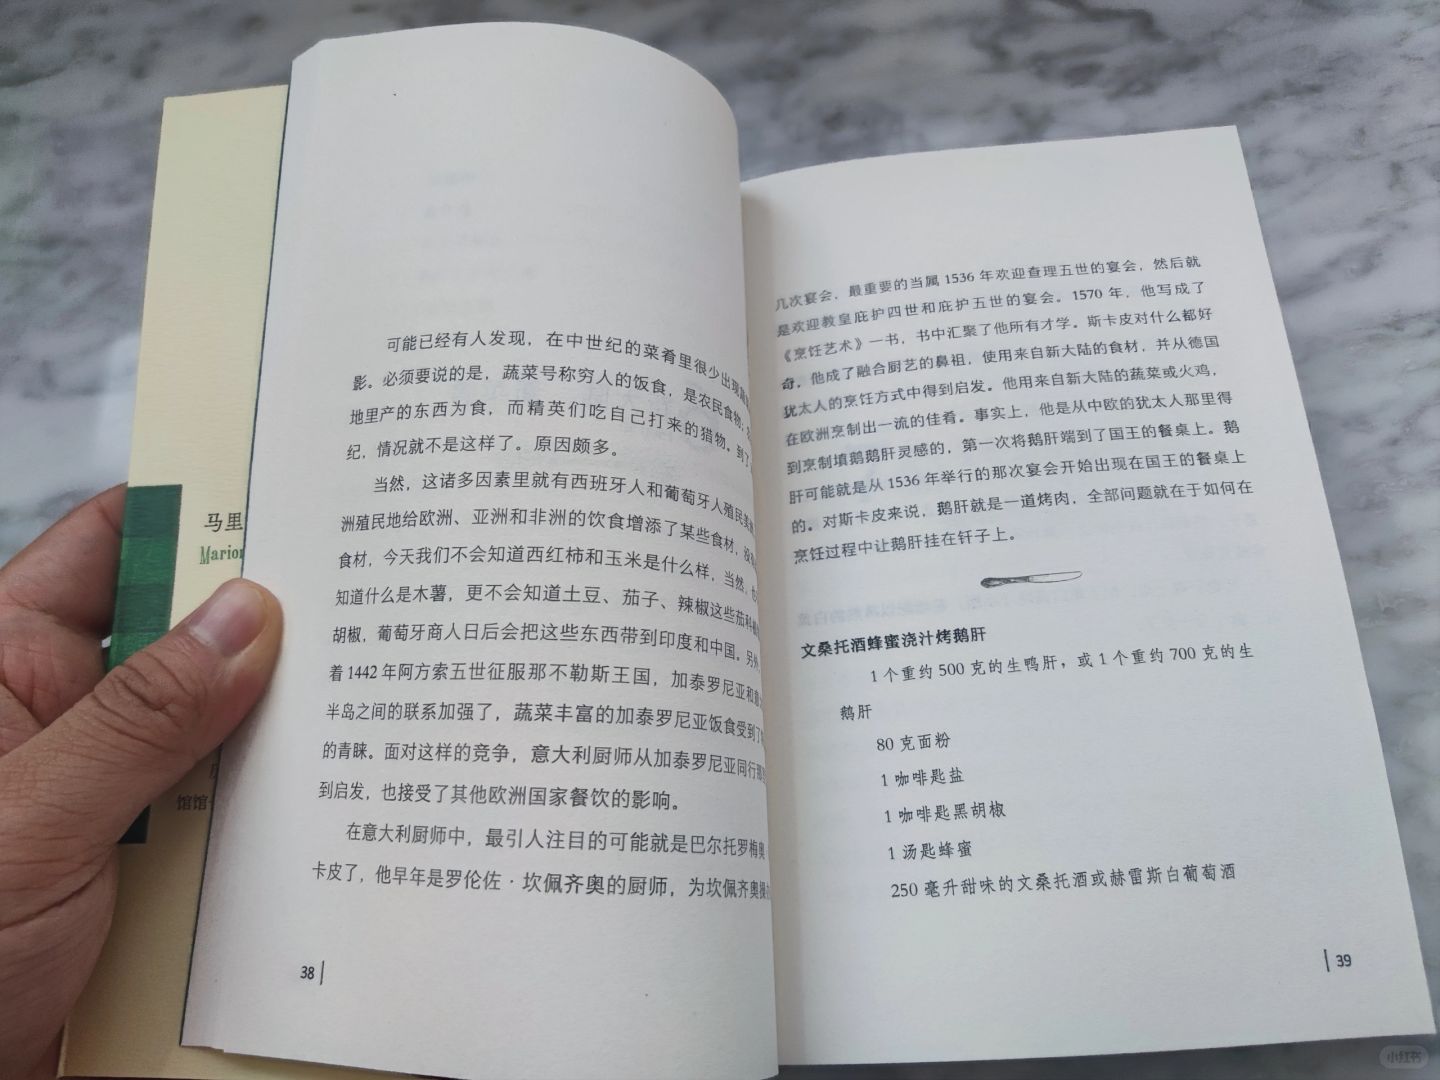 马里
Marion
馆馆
可能已经有人发现，在中世纪的菜肴里很少出现
影。必须要说的是，蔬菜号称穷人的饭食，是农民食物，
地里产的东西为食，而精英们吃自己打来的猎物。到了
纪，情况就不是这样了。原因颇多。
当然，这诸多因素里就有西班牙人和葡萄牙人殖民美
洲殖民地给欧洲、亚洲和非洲的饮食增添了某些食材，没有
食材，今天我们不会知道西红柿和玉米是什么样，当然，也
知道什么是木薯，更不会知道土豆、茄子、辣椒这些茄科植
胡椒，葡萄牙商人日后会把这些东西带到印度和中国。另外，
着 1442 年阿方索五世征服那不勒斯王国，加泰罗尼亚和意大
半岛之间的联系加强了，蔬菜丰富的加泰罗尼亚饭食受到了
的青睐。面对这样的竞争，意大利厨师从加泰罗尼亚同行那
到启发，也接受了其他欧洲国家餐饮的影响。
在意大利厨师中，最引人注目的可能就是巴尔托罗梅奥
卡皮了，他早年是罗伦佐·坎佩齐奥的厨师，为坎佩齐奥操
38
几次宴会，最重要的当属 1536 年欢迎查理五世的宴会，然后就
是欢迎教皇庇护四世和庇护五世的宴会。1570 年，他写成了
《烹饪艺术》一书，书中汇聚了他所有才学。斯卡皮对什么都好
奇，他成了融合厨艺的鼻祖，使用来自新大陆的食材，并从德国
犹太人的烹饪方式中得到启发。他用来自新大陆的蔬菜或火鸡，
在欧洲烹制出一流的佳肴。事实上，他是从中欧的犹太人那里得
到烹制填鹅鹅肝灵感的，第一次将鹅肝端到了国王的餐桌上。鹅
肝可能就是从 1536 年举行的那次宴会开始出现在国王的餐桌上
的。对斯卡皮来说，鹅肝就是一道烤肉，全部问题就在于如何在
烹饪过程中让鹅肝挂在钎子上。
文桑托酒蜂蜜浇汁烤鹅肝
1 个重约 500 克的生鸭肝，或 1 个重约 700 克的生
鹅肝
80 克面粉
1 咖啡匙盐
1 咖啡匙黑胡椒
1 汤匙蜂蜜
250 毫升甜味的文桑托酒或赫雷斯白葡萄酒
39
小红书